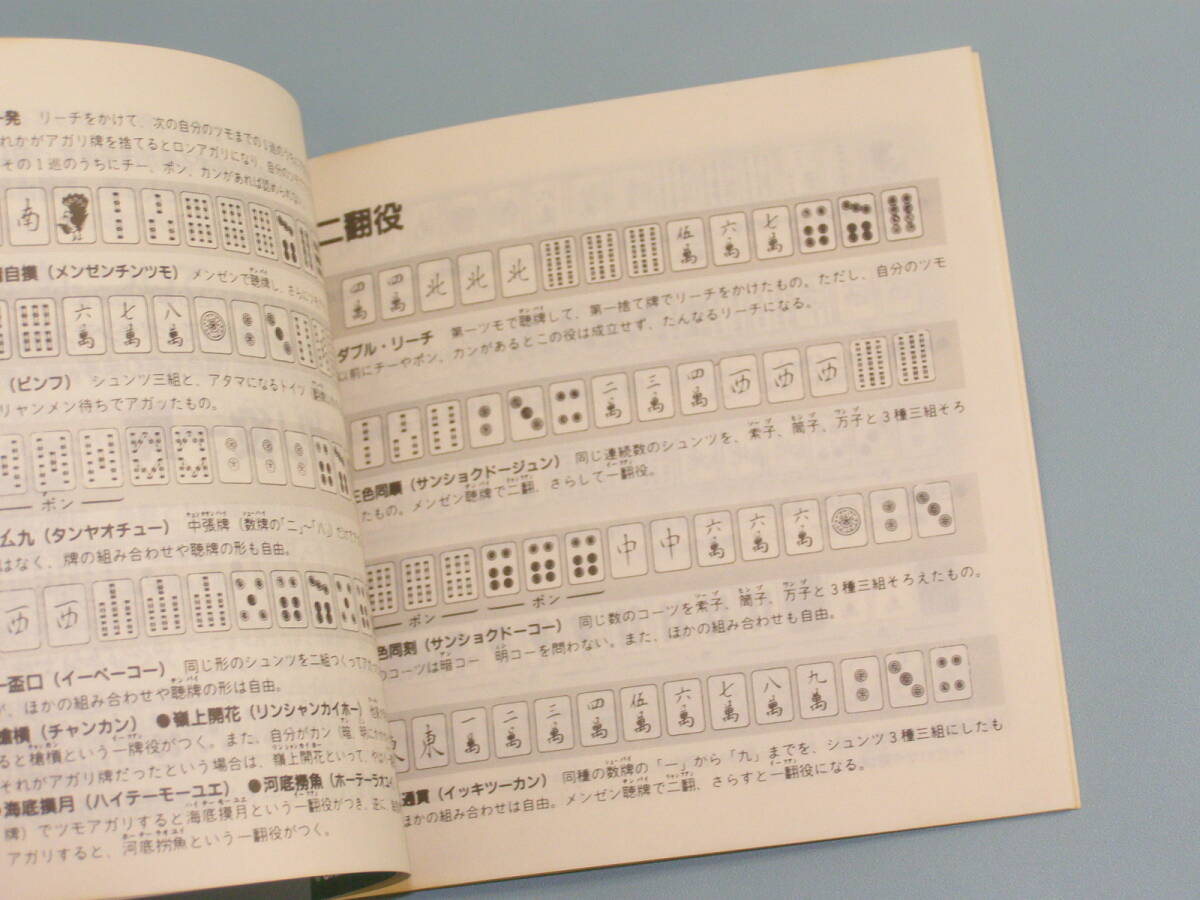 発 リーチをかけて、次の自分のツモまでの1巡のうちに
れかがアガリ牌を捨てるとロンアガリになり、自分の
その1巡のうちにチー、ポン、カンがあれば認められない
南
自摸(メンゼンチンツモ) メンゼンで聴牌し、さらに
六萬 七萬 八萬
(ピンフ) シュンツ三組と、アタマになるトイツ
リャンメン待ちでアガッたもの。
ポン
么九(タンヤオチュー) 中張牌(数牌の「二」~「八」)だけ
はなく、牌の組み合わせや聴牌の形も自由。
西 西
一盃口(イーペーコー) 同じ形のシュンツを二組つくって
が、ほかの組み合わせや聴牌の形は自由。
槍槓(チャンカン) ●嶺上開花(リンシャンカイホー)
ると槍槓という一牌役がつく。また、自分がカン(暗、明
それがアガリ牌だったという場合は、嶺上開花といって、
●海底摸月(ハイテーモーユエ) ●河底撈魚(ホーテーラオユイ
牌)でツモアガリすると海底摸月という一翻役がつき、逆に、
アガリすると、河底撈魚という一翻役がつく。
二翻役
四萬 四萬 北 北 北 伍萬 六萬 七萬
ダブル・リーチ 第一ツモで聴牌して、第一捨て牌でリーチをかけたもの。ただし、自分のツモ
以前にチーやポン、カンがあるとこの役は成立せず、たんなるリーチになる。
二萬 三萬 四萬 西 西 西
三色同順(サンショクドージュン) 同じ連続数のシュンツを、索子、筒子、万子と3種三組そろ
たもの。メンゼン聴牌で二翻、さらして一翻役。
中 中 六萬 六萬 六萬
ポン ポン
色同刻(サンショクドーコー) 同じ数のコーツを索子、筒子、万子と3種三組そろえたもの。
のコーツは暗コー 明コーを問わない。また、ほかの組み合わせも自由。
東 一萬 二萬 三萬 四萬 伍萬 六萬 七萬 八萬 九萬
通貫(イッキツーカン) 同種の数牌の「一」から「九」までを、シュンツ3種三組にしたも
ほかの組み合わせは自由。メンゼン聴牌で二翻、さらすと一翻役になる。